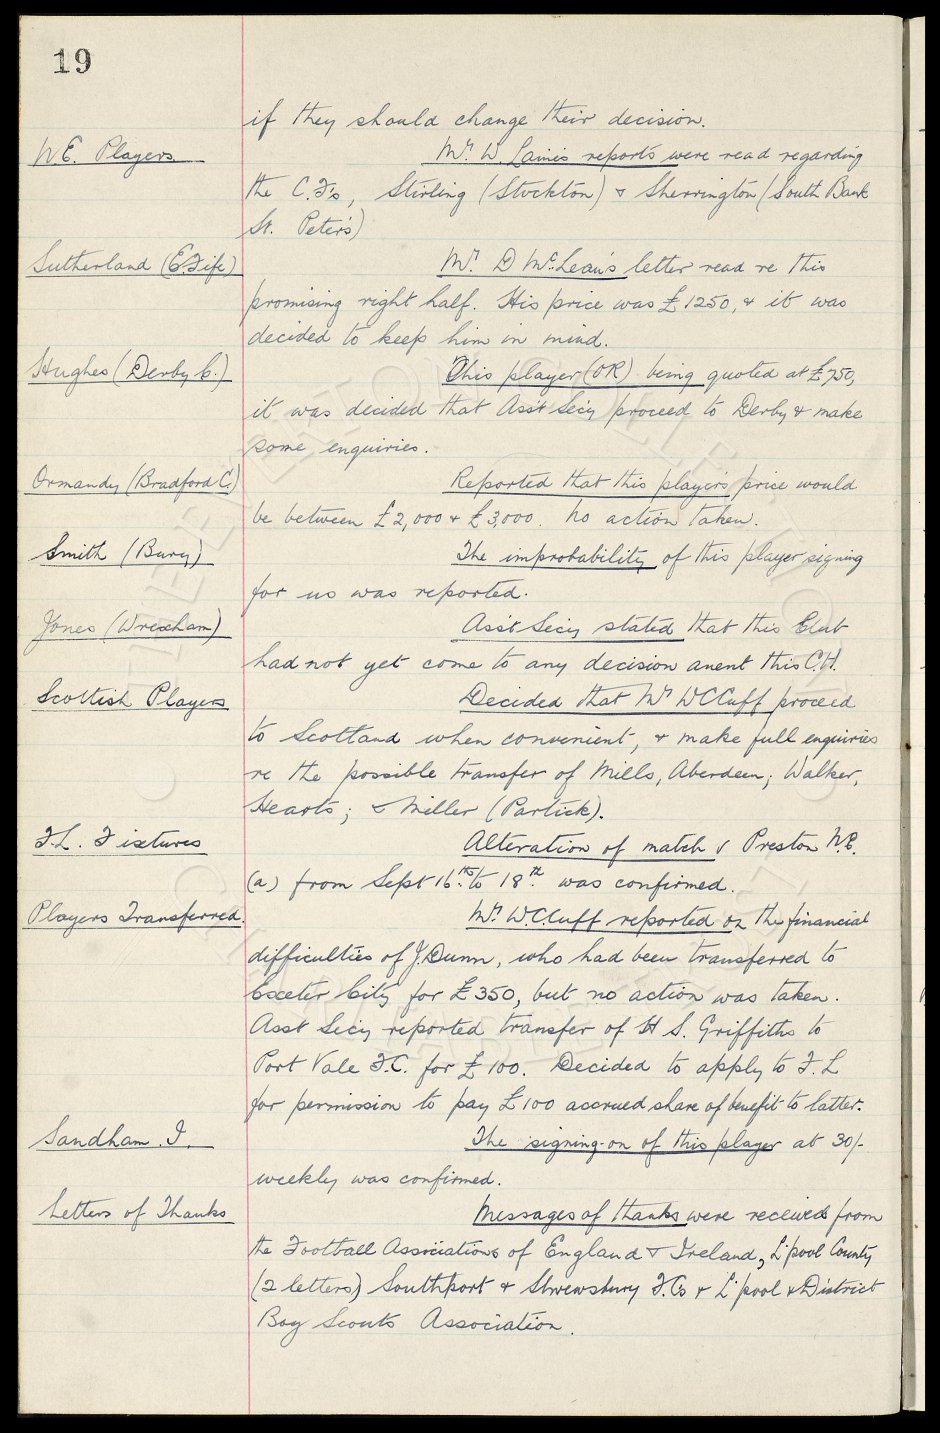 19
if they should change their decision.
N.E. Players Mr. W. Laine's reports were read regarding
the C.F's, Stirling (Stockton) & Sherrington (South Bank
St. Peter's)
Sutherland (E. Fife) Mr. D McLean's letter read re this
promising right half. His price was £1250, & it was
decided to keep him in mind.
Hughes (Derby C.) This player (OR) being quoted at £750,
it was decided that Asst Secy proceed to Derby & make
some enquiries.
Ormandy (Bradford C.) Reported that this player's price would
be between £2,000 & £3,000. No action taken.
Smith (Bury) The improbability of this player signing
for us was reported.
Jones (Wrexham) Asst Secy stated that this Club
had not yet come to any decision anent this C.H.
Scottish Players Decided that Mr W C Cuff proceed
to Scotland when convenient, & make full enquiries
re the possible transfer of Mills, Aberdeen; Walker,
Hearts; & Miller (Partick).
F.L. Fixtures Alteration of match v Preston N.E.
(a) from Sept 16th to 18th was confirmed.
Players Transferred. Mr. W.C. Cuff reported on the financial
difficulties of J. Dunn, who had been transferred to
Exeter City for £350, but no action was taken.
Asst Secy reported transfer of H S. Griffiths to
Port Vale F.C. for £100. Decided to apply to F. L
for permission to pay £100 accrued share of benefit to latter.
Sandham. J. The signing-on of this player at 30/-
weekly was confirmed.
Letters of Thanks Messages of thanks were received from
the Football Associations of England & Ireland, L'pool County
(2 letters) Southport & Shrewsbury F.Cs & L'pool & District
Boy Scouts Association.